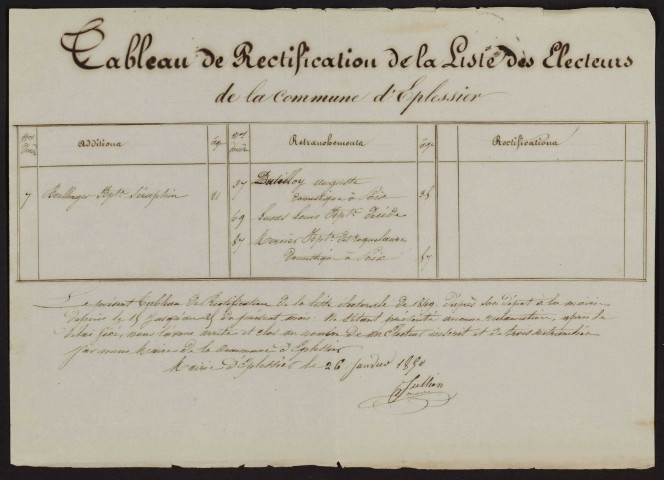 Tableau de Rectification de la Liste des Electeurs
de la commune d'Eplessier
Additions
âge
Retranchements
âge
Rectifications
7 Boullenger Bpte Séraphin 21
37 auguste
domestique à Poix 38
69 Louis Bpte décédé
87 Bpte
domestique à Poix 87
Le présent Tableau de Rectification de la liste électorale de 1849 depuis son dépôt à la mairie
depuis le 15 jusqu'au 25 du présent mois. Ne s'étant présenté aucune réclamation, après le
délai fixé, nous l'avons arrêté et clos au nombre de un Electeur inscrit et de trois retranchés
par nous Maire de la commune d'Eplessier
Mairie d'Eplessier le 26 Janvier 1850
Jullien